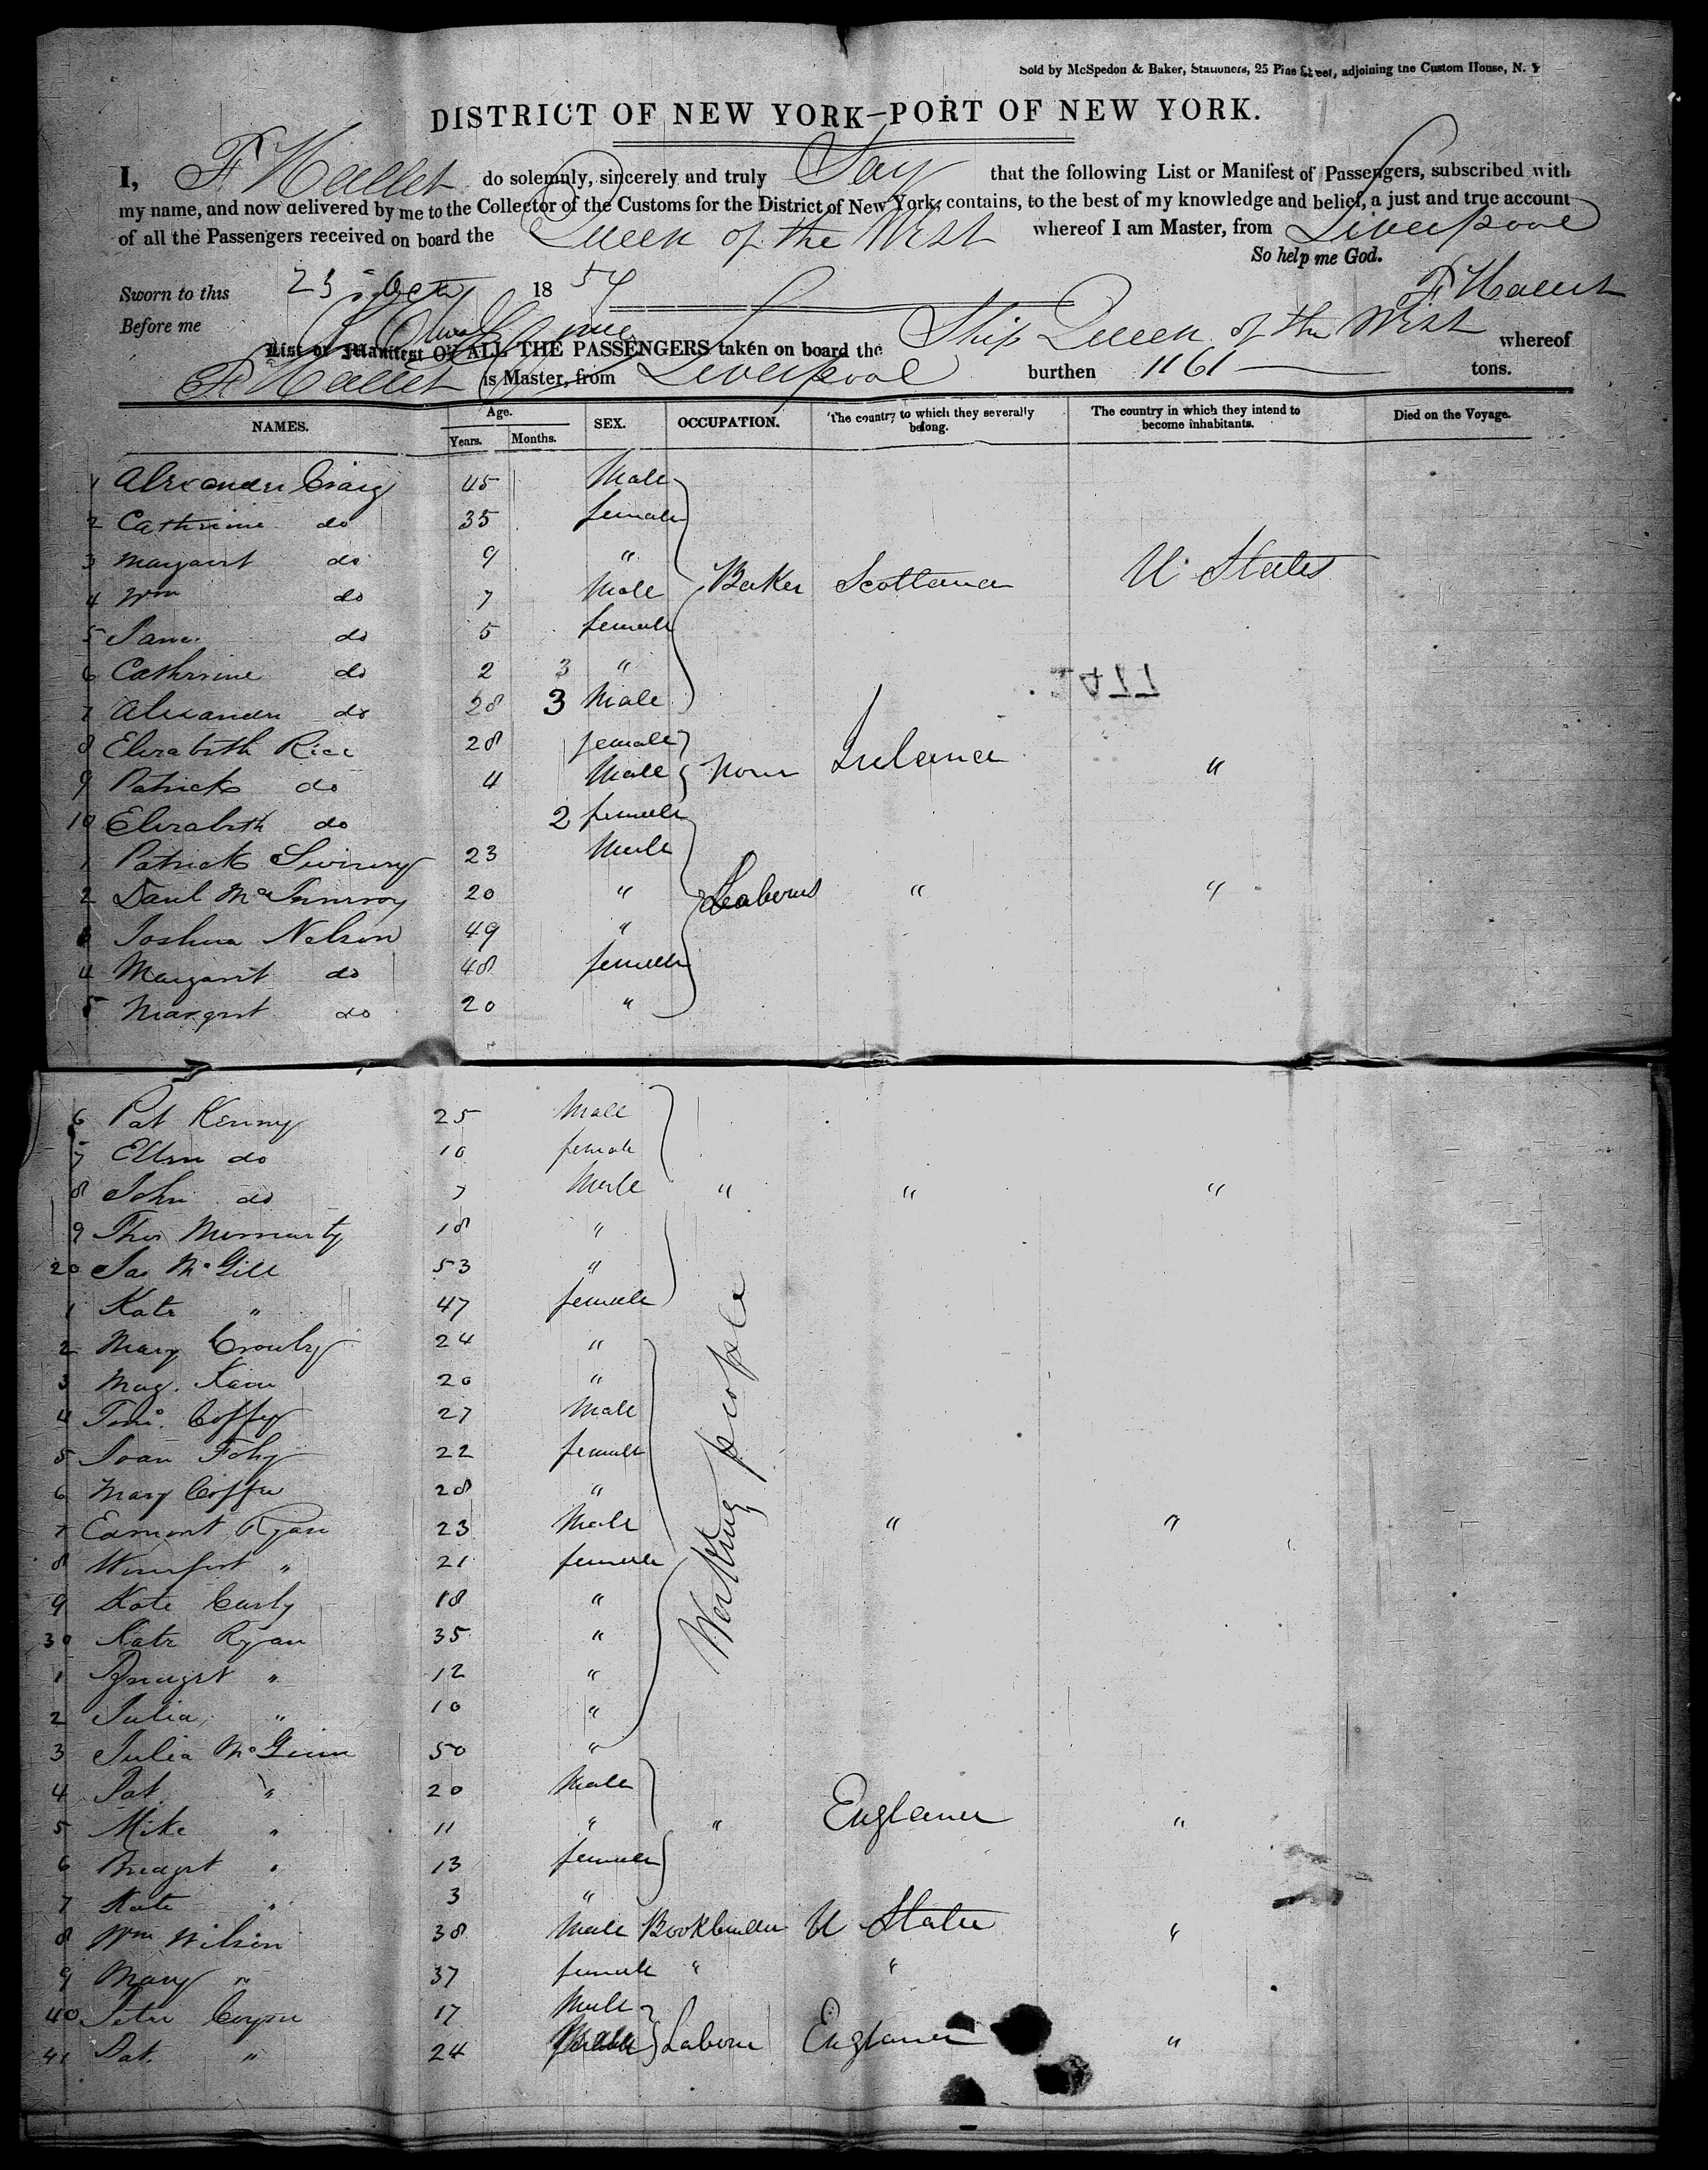 Sold by McSpedon & Baker, Stationers, 25 Pine Street, adjoining the Custom House, N. Y
DISTRICT OF NEW YORK—PORT OF NEW YORK.
I, F Hallet do solemnly, sincerely and truly Say that the following List or Manifest of Passengers, subscribed with
my name, and now delivered by me to the Collector of the Customs for the District of New York, contains, to the best of my knowledge and belief, a just and true account
of all the Passengers received on board the Queen of the West whereof I am Master, from Liverpool
So help me God.
Sworn to this 23 Oct 1854 F Hallet
Before me
List or Manifest OF ALL THE PASSENGERS taken on board the Ship Queen of the West whereof
F Hallet is Master, from Liverpool burthen 1161 tons.
NAMES. Age. Years. Months. SEX. OCCUPATION. The country to which they severally belong. The country in which they intend to become inhabitants. Died on the Voyage.
1 Alexander Craig 45 Male
2 Cathrine do 35 female
3 Margaret do 9 "
4 Wm do 7 Male Baker Scotland U States
5 Jane do 5 female
6 Cathrine do 2 3 "
7 Alexander do 28 3 Male
8 Elizabeth Rice 28 female
9 Patrick do 4 Male None Ireland "
10 Elizabeth do 2 female
1 Patrick Swiney 23 Male
2 Danl 20 " Labourers " "
Joshua Nelson 49 "
4 Margaret do 48 female
5 Margret do 20 "
6 Pat Kenny 25 Male
7 Ellen do 10 female
8 John do 7 Male " " "
9 Thos 18 "
20 Jas McGill 53 "
1 Kate " 47 female
2 Mary Crowly 24 "
3 Mag. 20 "
4 Tim. Coffey 27 Male
5 Joan Fohy 22 female
6 Mary Coffee 28 "
7 Edmont Ryan 23 Male Working people " "
8 " 21 female
9 Kate 18 "
30 Kate Ryan 35 "
1 " 12 "
2 Julia " 10 "
3 Julia McGinn 50 "
4 Pat. " 20 Male
5 Mike " 11 " " England "
6 Bridget " 13 female
7 Kate " 3 "
8 Wm Wilson 38 Male Bookbinder U States "
9 Mary " 37 female " "
40 Peter 17 Male
41 Pat. " 24 Labour England "